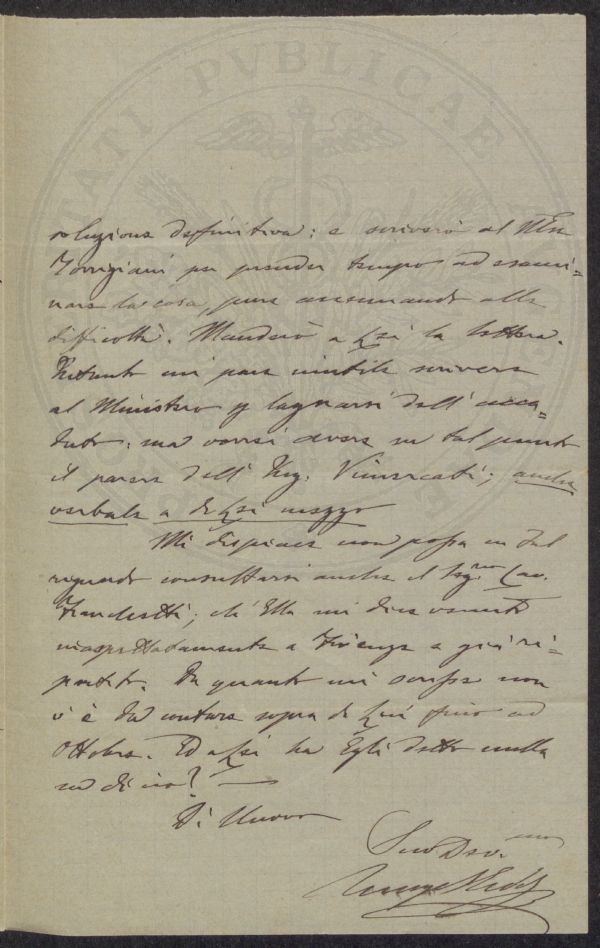 TATI PVBLICAE
soluzione definitiva: e scriverò al
Torrigiani per prender tempo ad esami=
nare la cosa, pure accennando alle
difficoltà. Manderò a Lei la lettera.
Pertanto mi pare inutile scrivere
al Ministero e lagnarsi dell' acca=
duto: ma vorrei avere su tal punto
il parere dell' Ing. Vimercati; anche
verbale a di Lei mezzo
Mi dispiace non possa in tal
riguardo consultarsi anche il Sig.re Cav.
Franchetti; ch' Ella mi dice venuto
inaspettatamente a Firenze e già ri=
partito. Da quanto mi scrisse non
v' è da contare sopra di Lui fino ad
Ottobre. Ed a Lei ha Egli detto nulla
su di ciò? —
Di Nuovo
Suo Dev.mo